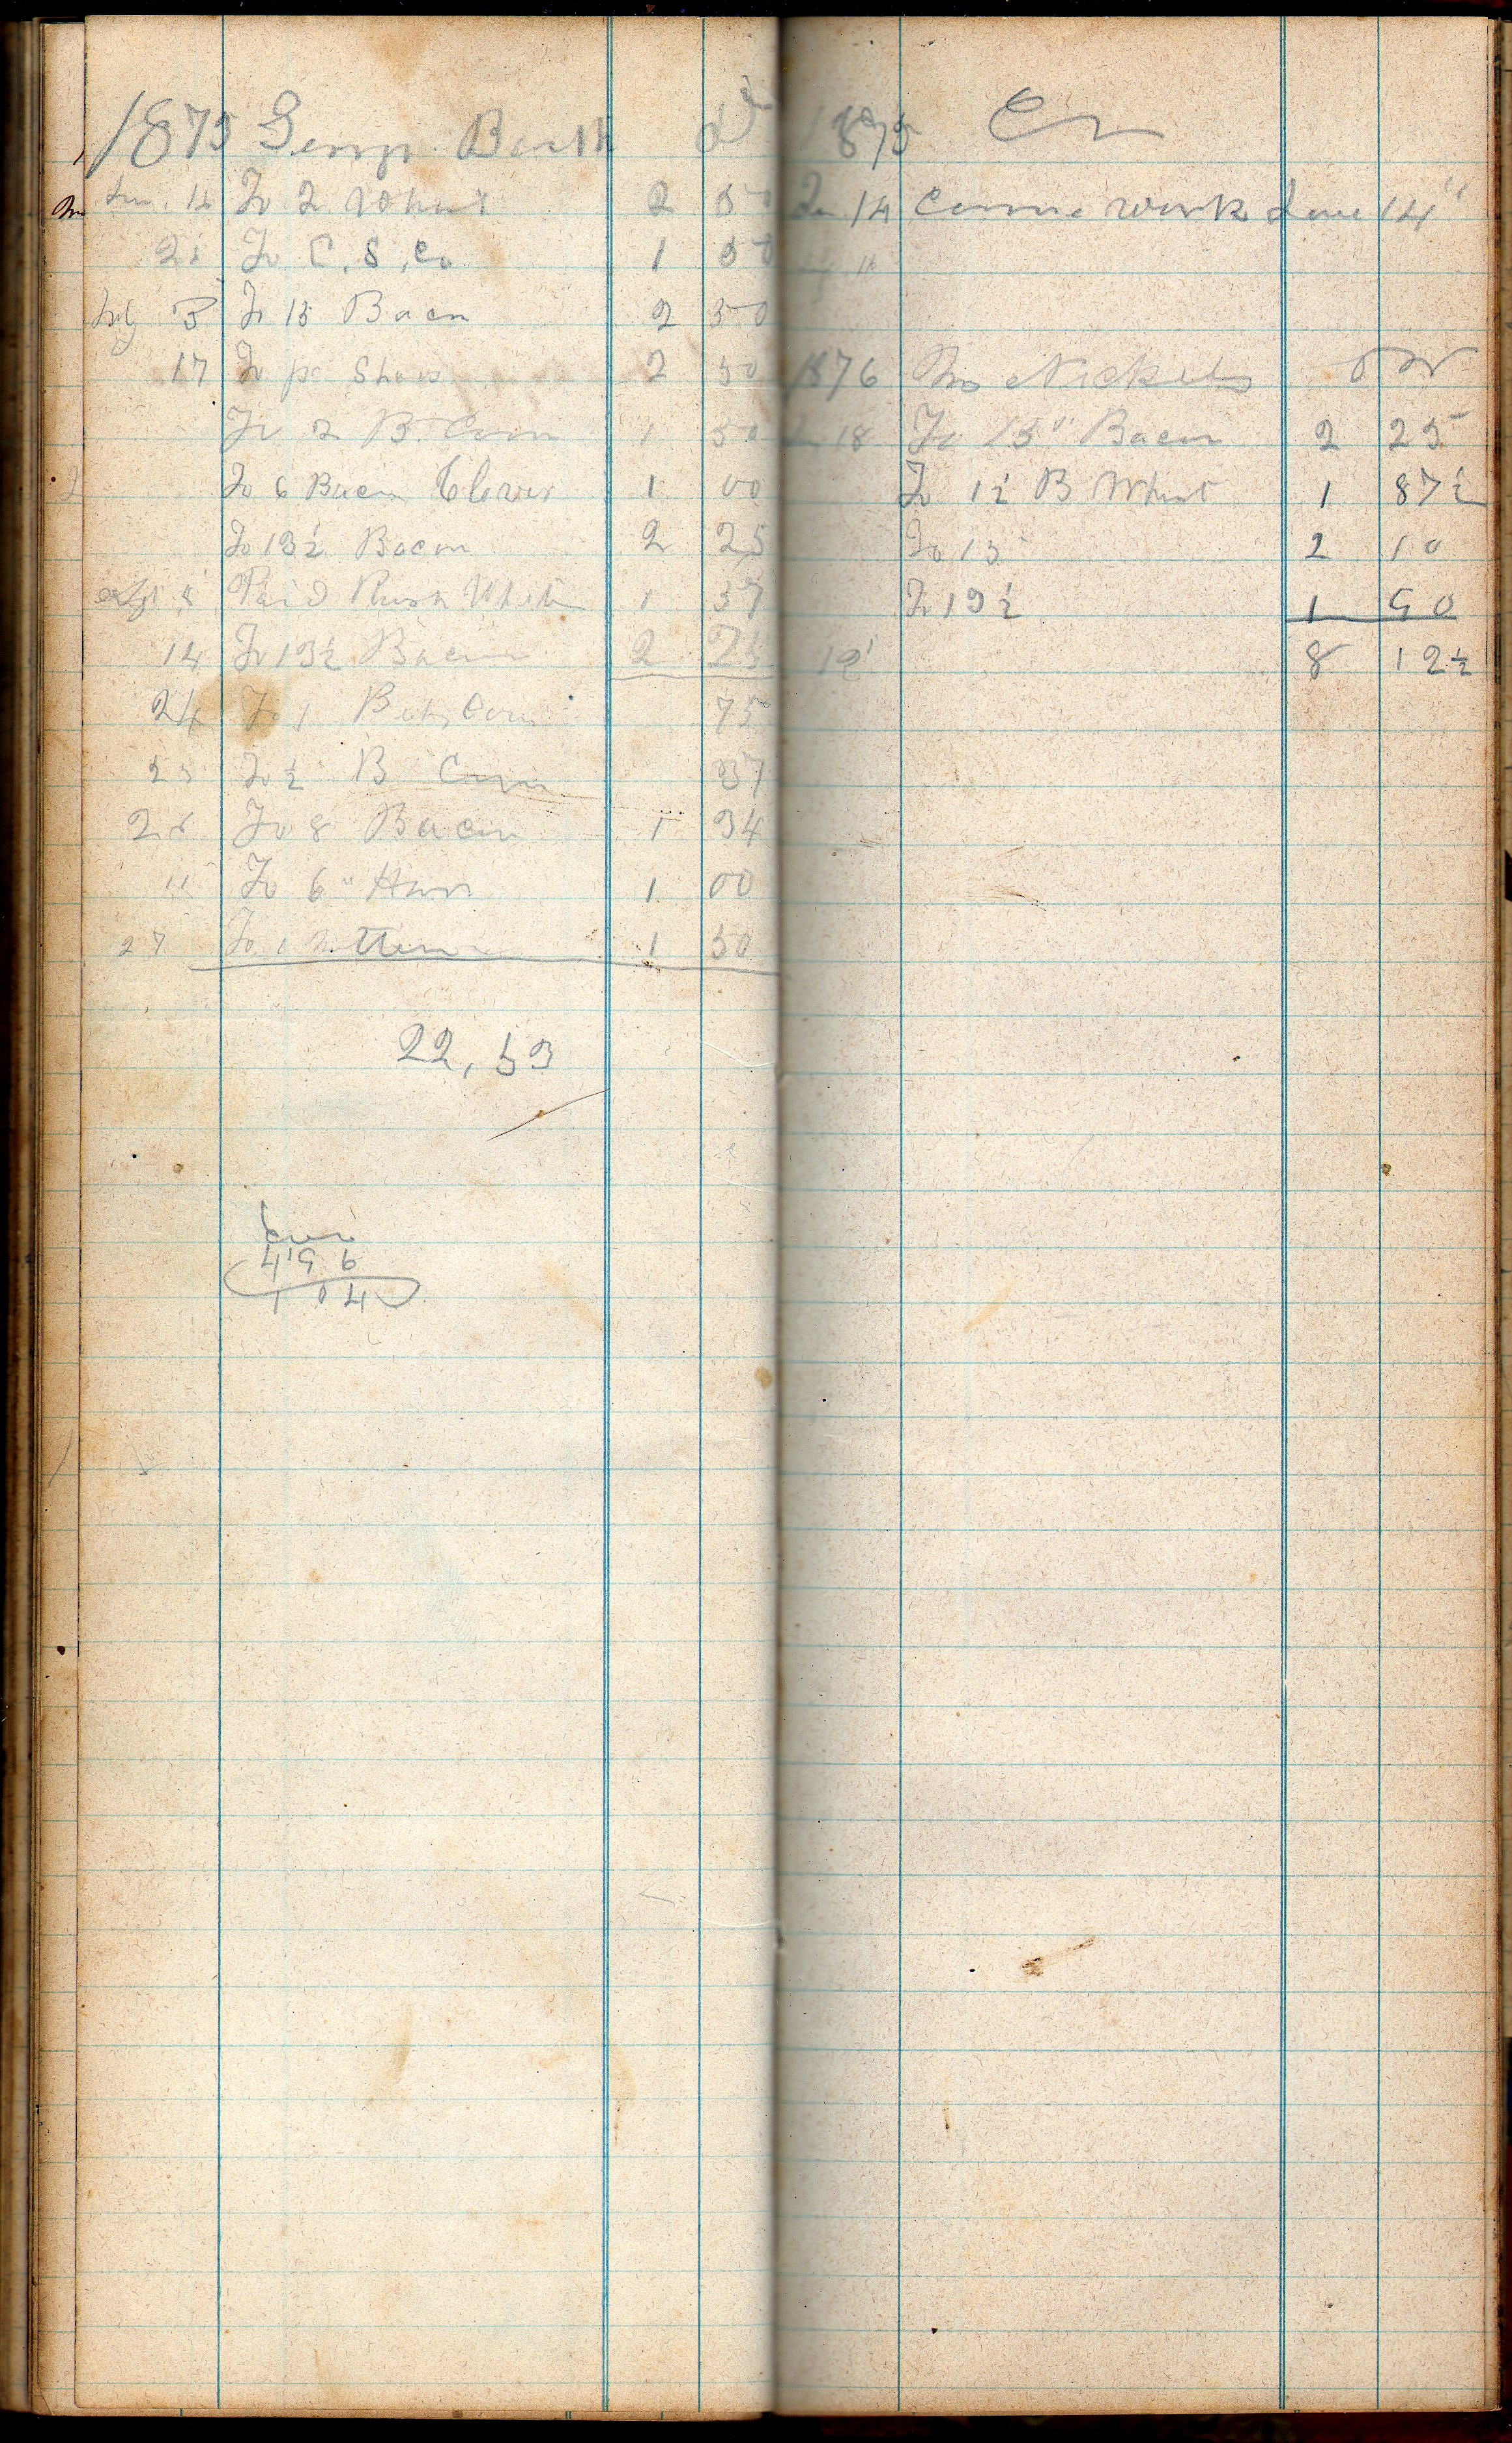 1875 Bush Dr
Jun 14 To 2 Wheat 2 50
21 To C. S. Co 1 50
July 5 To 15 Bacon 2 50
17 To pr Shoes 2 50
To 2 B. Corn 1 50
To 6 Bacon Clever 1 00
To 13½ Bacon 2 25
8 Paid Rush 1 37
14 To 13½ Bacon 2 25
24 To 1 Bush Corn 75
25 To ½ B Corn 37
26 To 8 Bacon 1 34
" To 6 " Ham 1 00
27 To 1 Mutton 1 50
22,53
4,5 6
1 04
1875 Cr
Jun 14 Comm. work June 14"
1876 Nickels Dr
18 To 15" Bacon 2 25
To 1½ B Wheat 1 87½
To 15 2 10
To 19½ 1 90
8 12½